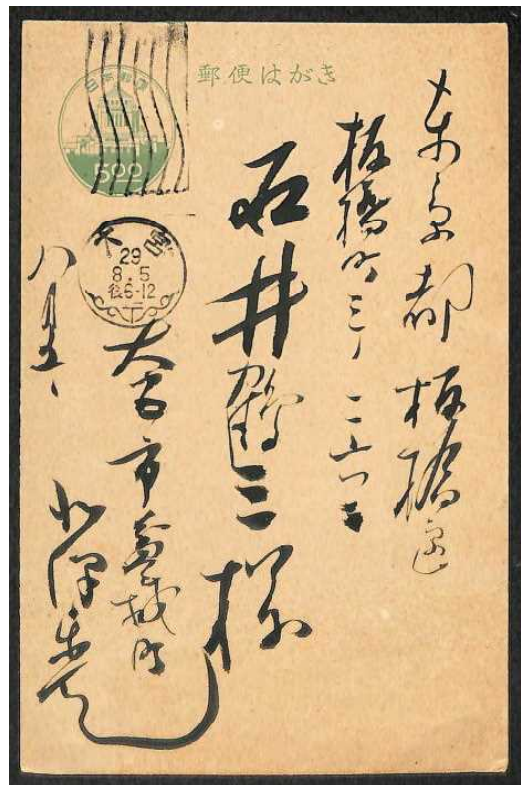 郵便はがき
日本郵便
500
大宮
29
8.5
後6-12
東京都板橋区
板橋町三ノ二六六二
石井鶴三様
八月五日
大宮市盆栽町
北沢楽天